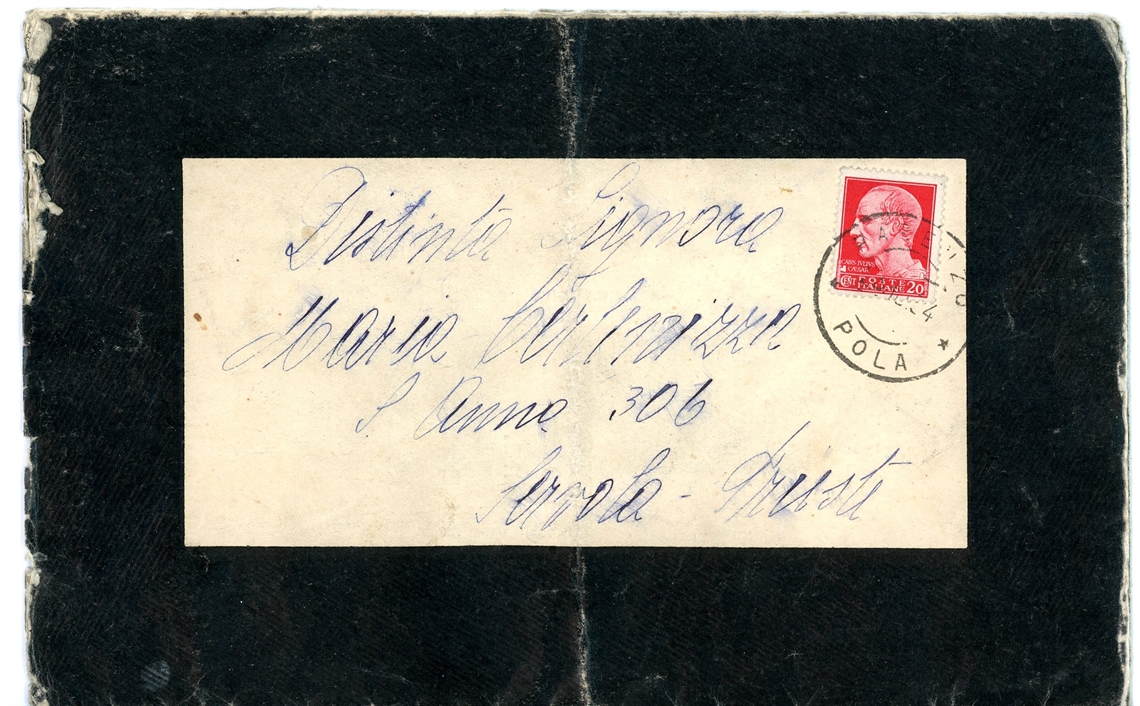 Distinta Signora
Maria
S Anna 306
Servola - Trieste
CAIVS IVLIVS
CAESAR
POSTE
CENT ITALIANE 20
POLA